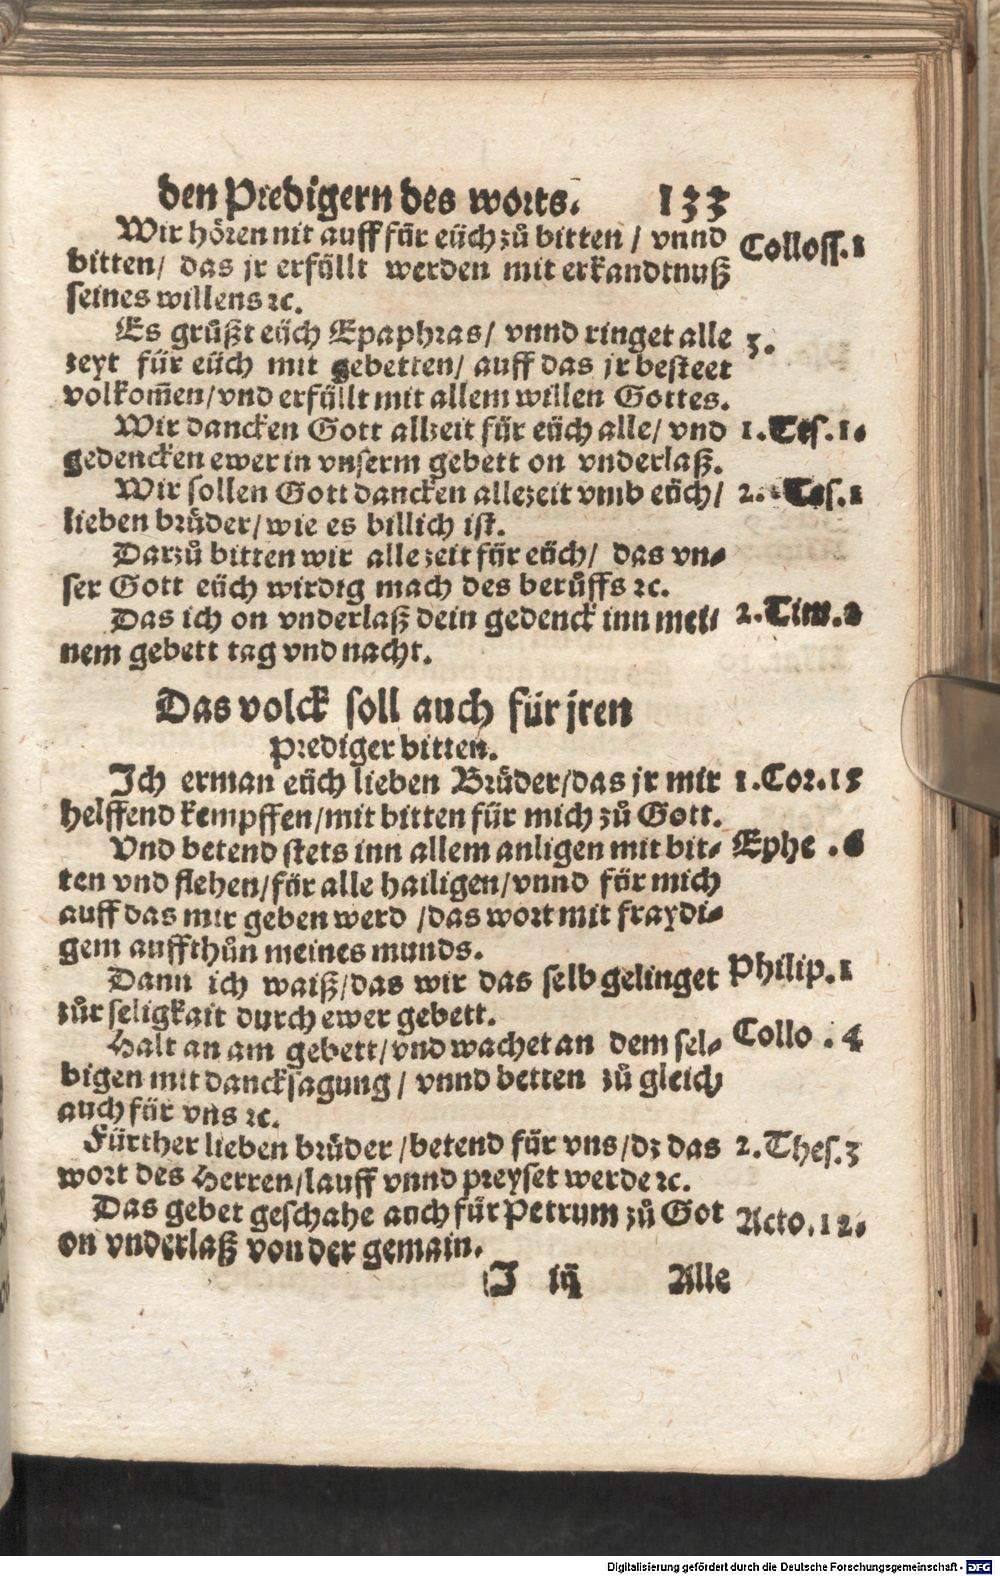 den Predigern des worts. 133
Wir hören nit auff für eüch zů bitten / vnnd Coloss.1
bitten/ das jr erfüllt werden mit erkandtnuß
seines willens ꝛc.
Es grüßt eüch Epaphras/ vnnd ringet alle 3.
zeyt für eüch mit gebetten/ auff das jr besteet
volkom̄en/vnd erfüllt mit allem willen Gottes.
Wir dancken Gott allzeit für eüch alle/ vnd 1.Tes.1.
gedencken ewer in vnserm gebett on vnderlaß.
Wir sollen Gott dancken allezeit vmb eüch/ 2. Tes.1
lieben brüder/wie es billich ist.
Darzů bitten wir alle zeit für eüch/ das vn⸗
ser Gott eüch wirdig mach des berůffs ꝛc.
Das ich on vnderlaß dein gedenck inn mei⸗ 2.Tim.
nem gebett tag vnd nacht.
Das volck soll auch für jren
Prediger bitten.
Ich erman eüch lieben Brüder/das jr mir 1.Cor.15
helffend kempffen/mit bitten für mich zů Gott.
Vnd betend stets inn allem anligen mit bit⸗ Ephe .6
ten vnd flehen/för alle hailigen/vnnd för mich
auff das mir geben werd /das wort mit fraydi⸗
gem auffthůn meines munds.
Dann ich waiß/das wir das selb gelinget Philip.1
zůr seligkait durch ewer gebett.
Halt an am gebett/vnd wachet an dem sel⸗ Collo .4
bigen mit dancksagung / vnnd betten zů gleich
auch für vns ꝛc.
Fürther lieben brüder /betend für vns/dz das 2.Thes.3
wort des Herren/lauff vnnd preyset werde ꝛc.
Das gebet geschahe auch für Petrum zů Got Acto.12.
on vnderlaß von der gemain.
J iij Alle
Digitalisierung gefördert durch die Deutsche Forschungsgemeinschaft - DFG